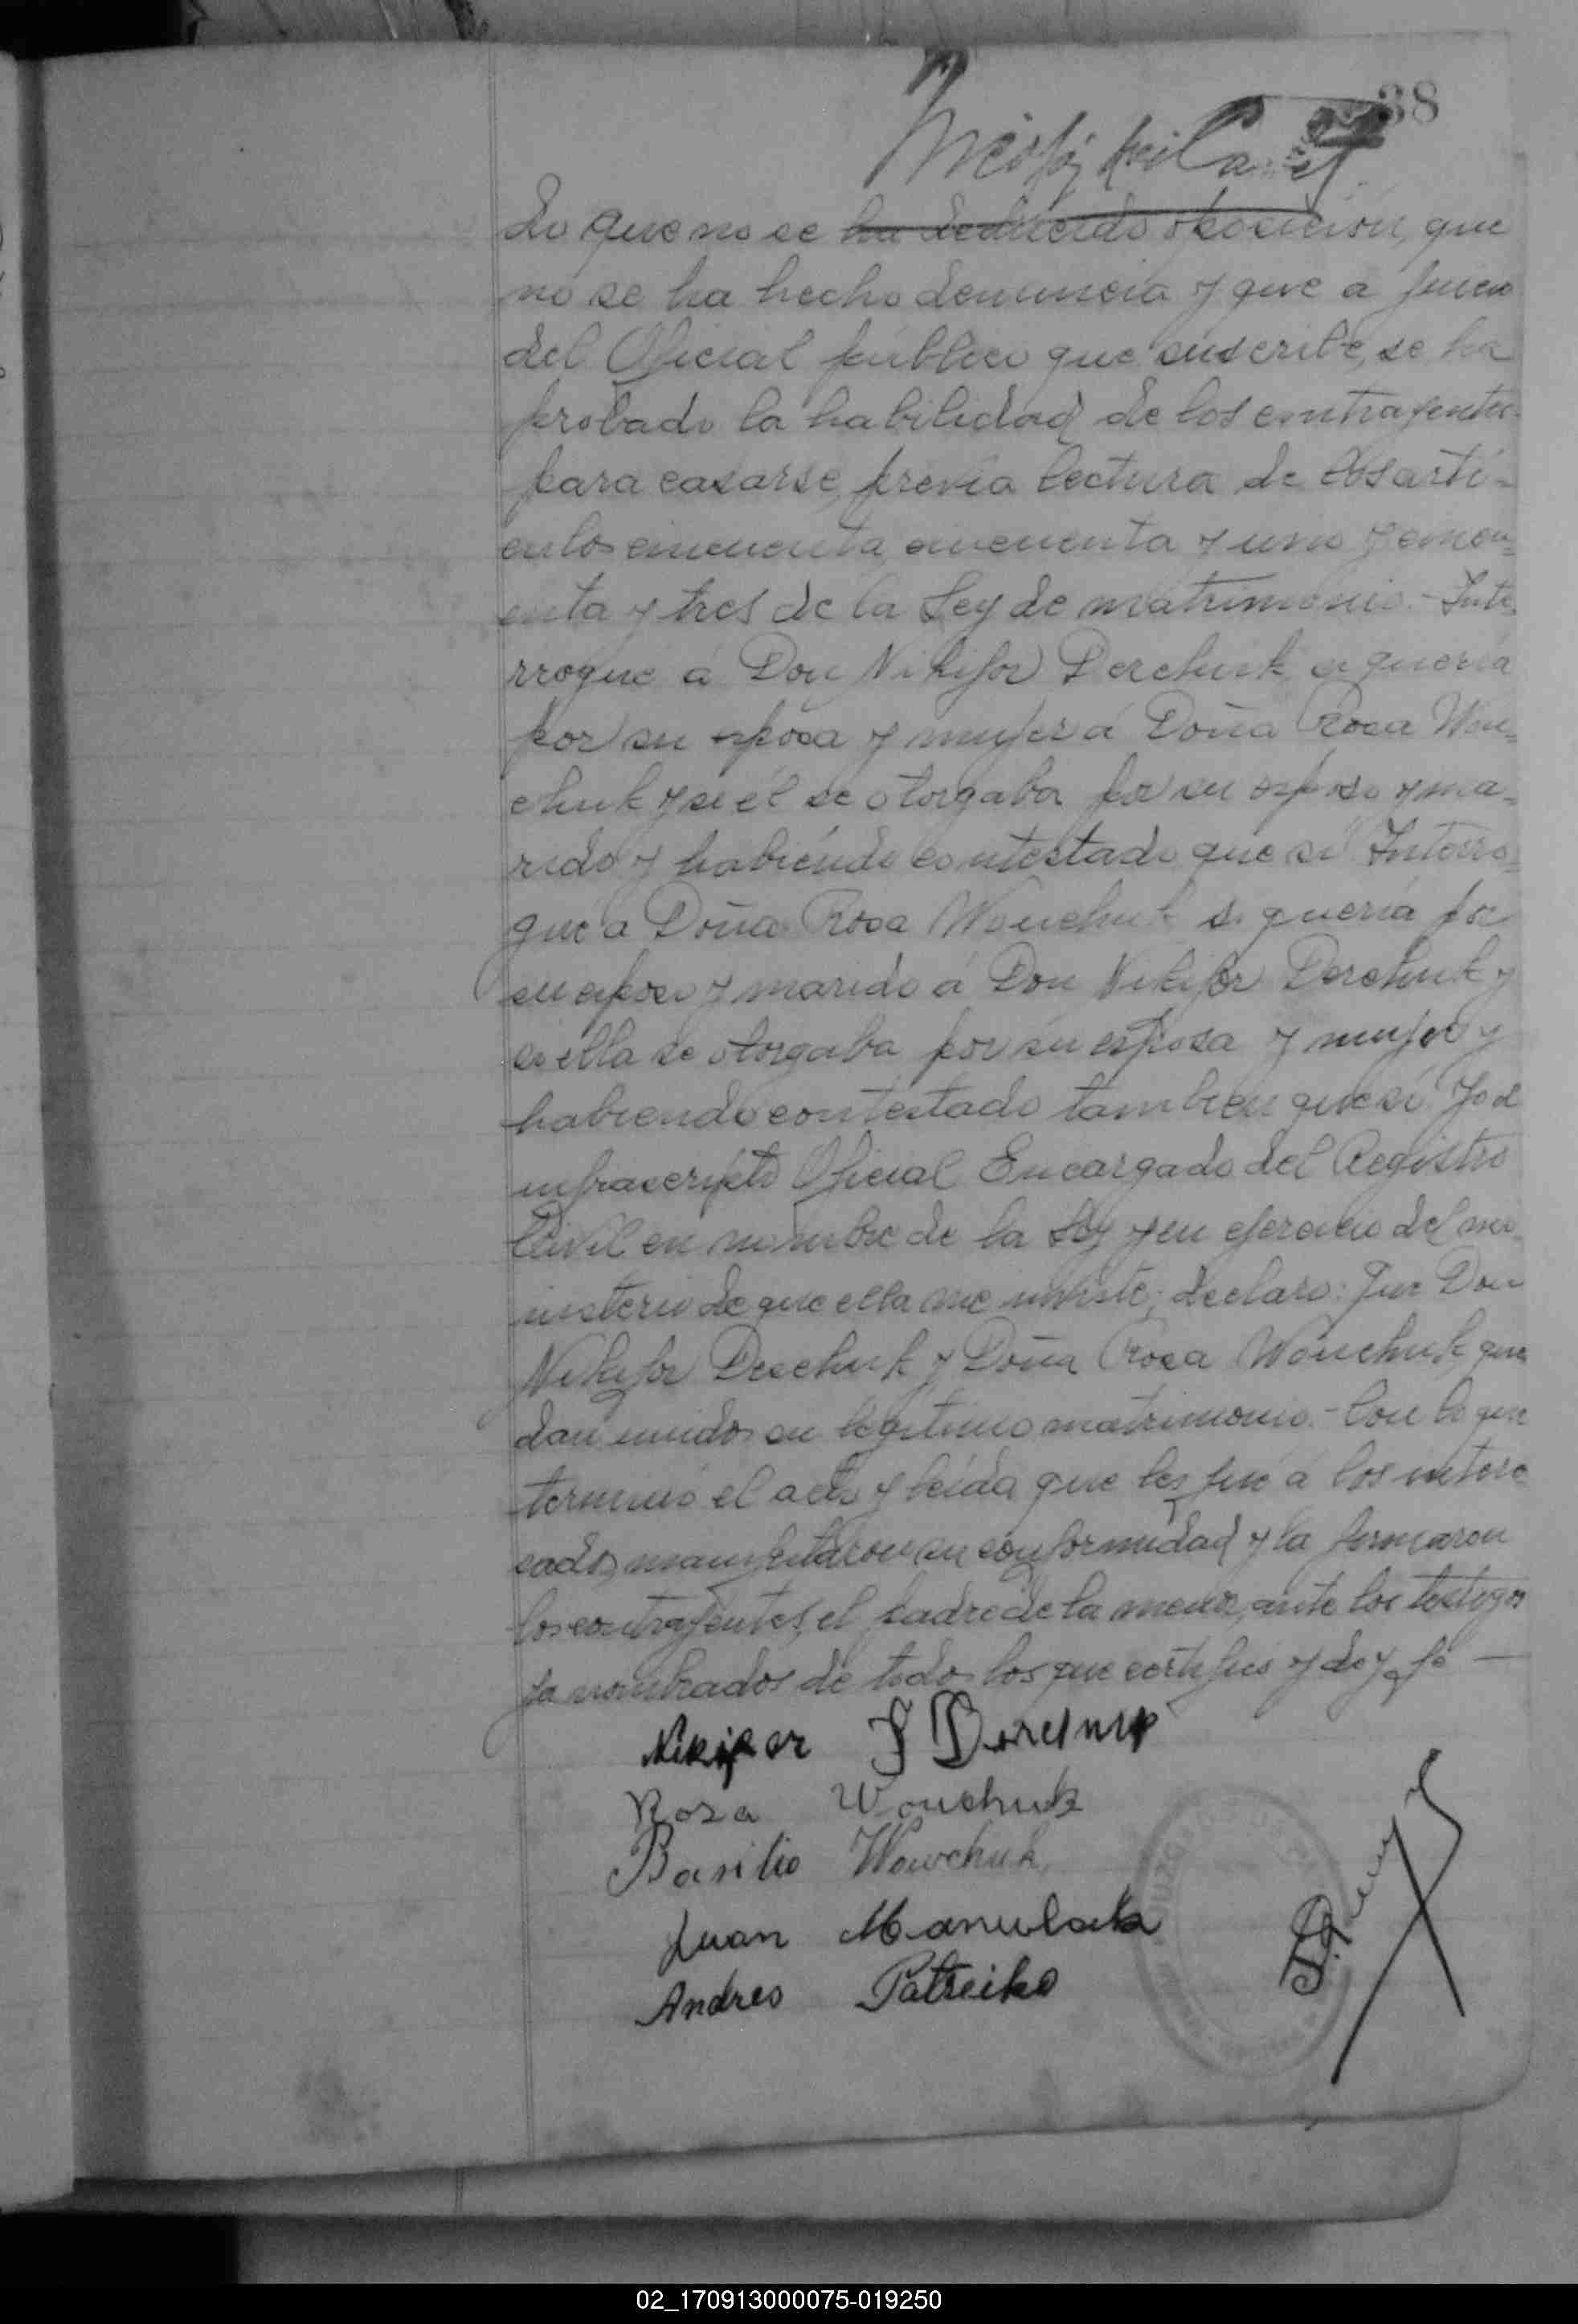 38
do que no se ha deducido oposición, que
no se ha hecho denuncia y que a juicio
del Oficial público que suscribe, se ha
probado la habilidad de los contrayentes
para casarse, previa lectura de los artí-
culos cincuenta, cincuenta y uno y cincu-
enta y tres de la Ley de matrimonio.- Inte-
rrogué á Don Nikifor Derchuk si quería
por su esposa y mujer á Doña Rosa Wou-
chuk y si él se otorgaba por su esposo y ma-
rido y habiendo contestado que sí Interro-
gué a Doña Rosa Wouchuk si quería por
su esposo y marido á Don Nikifor Derchuk y
si ella se otorgaba por su esposa y mujer y
habiendo contestado tambien que sí. Yo el
infrascripto Oficial Encargado del Registro
Civil en nombre de la Ley y en ejercicio del mi-
nisterio de que ella me inviste; declaro: Que Don
Nikifor Derchuk y Doña Rosa Wouchuk, que
dan unidos en legítimo matrimonio.- Con lo que
terminó el acto y leída que les fué á los intere
sados, manifestaron su conformidad y la firmaron
los contrayentes, el padre de la menor, ante los testigos
ya nombrados de todos los que certifico y doy fé —
Nikifor Derchuk
Rosa Wouchuk
Basilio Wowchuk
Juan Manulak
Andres Patreiko
02_170913000075-019250